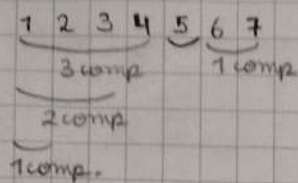 1 2 3 4 5 6 7
3 comp 1 comp
2 comp
1 comp.